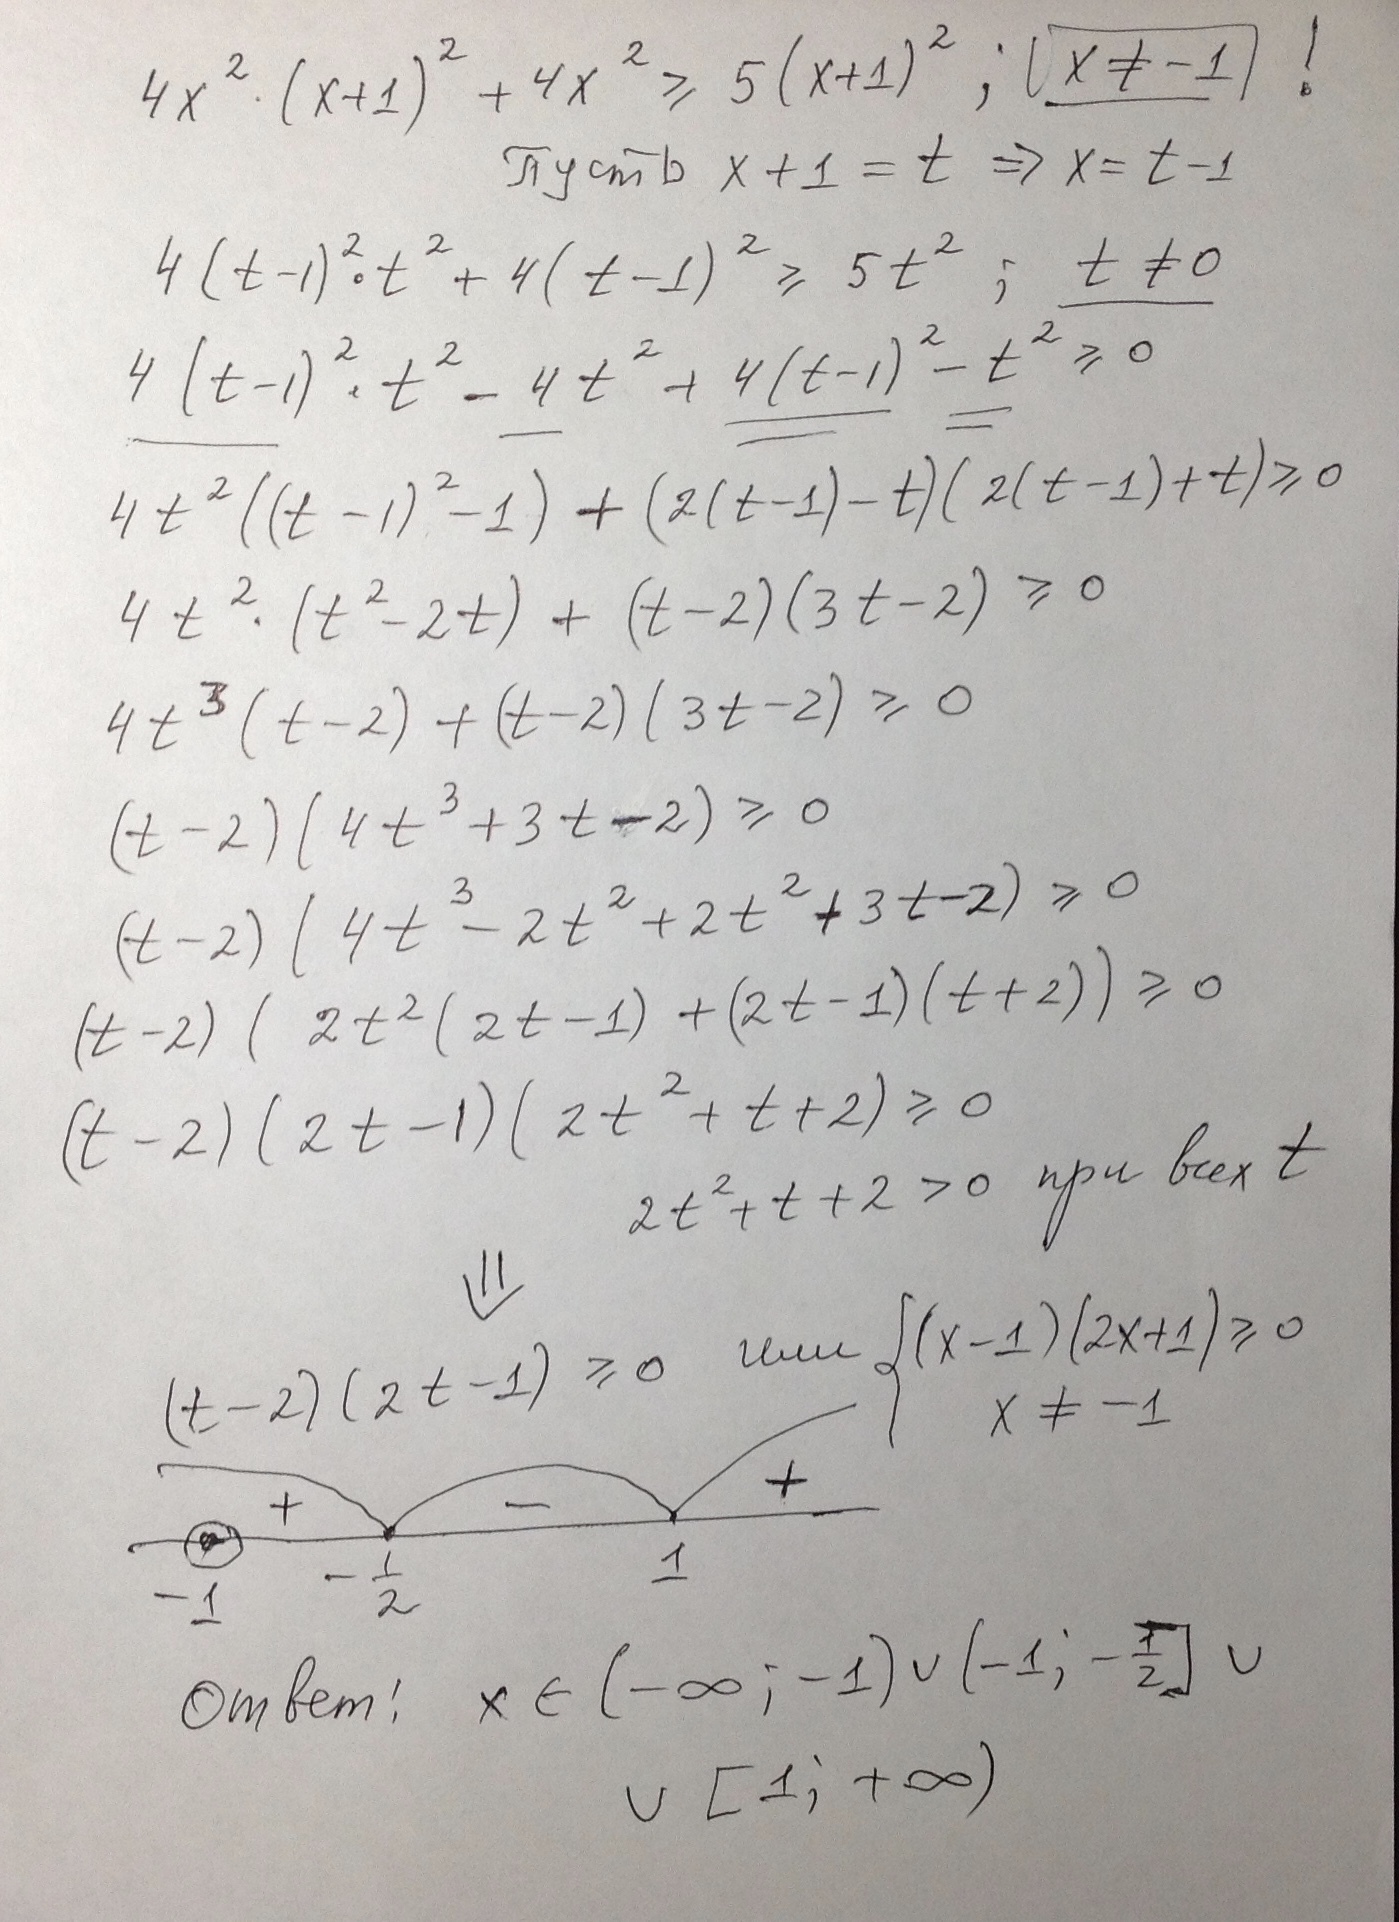 4x²·(x+1)² + 4x² ⩾ 5(x+1)² ; x ≠ -1 !
Пусть x+1 = t ⇒ x = t-1
4(t-1)²·t² + 4(t-1)² ⩾ 5t² ; t ≠ 0
4(t-1)²·t² - 4t² + 4(t-1)² - t² ⩾ 0
4t²((t-1)²-1) + (2(t-1)-t)(2(t-1)+t) ⩾ 0
4t²·(t²-2t) + (t-2)(3t-2) ⩾ 0
4t³(t-2) + (t-2)(3t-2) ⩾ 0
(t-2)(4t³+3t-2) ⩾ 0
(t-2)(4t³-2t²+2t²+3t-2) ⩾ 0
(t-2)(2t²(2t-1)+(2t-1)(t+2)) ⩾ 0
(t-2)(2t-1)(2t²+t+2) ⩾ 0
2t²+t+2 > 0 при всех t
⇓
(t-2)(2t-1) ⩾ 0 или { (x-1)(2x+1) ⩾ 0
x ≠ -1
+ - +
-1 -1/2 1
Ответ: x ∈ (-∞; -1) ∪ (-1; -1/2] ∪
∪ [1; +∞)